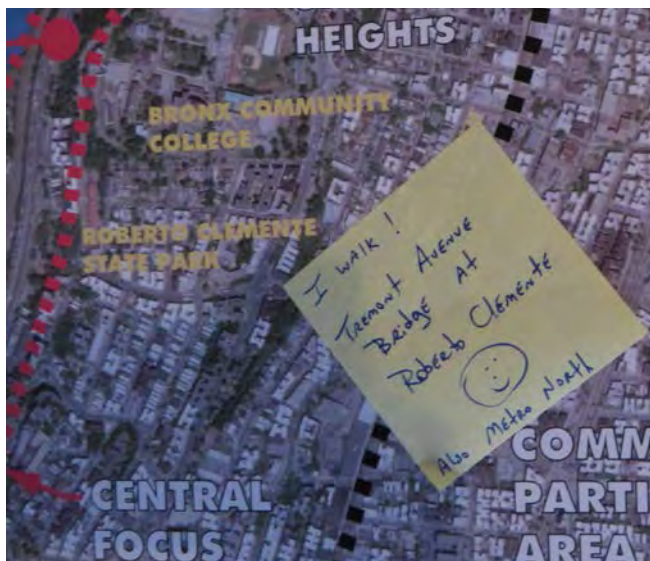 HEIGHTS
BRONX COMMUNITY
COLLEGE
ROBERTO CLEMENTE
STATE PARK
I WALK!
TREMONT AVENUE
BRIDGE At
RobERTO CLEMENTE
Also METRO NORTH
CENTRAL
FOCUS
COMM
PARTI
AREA